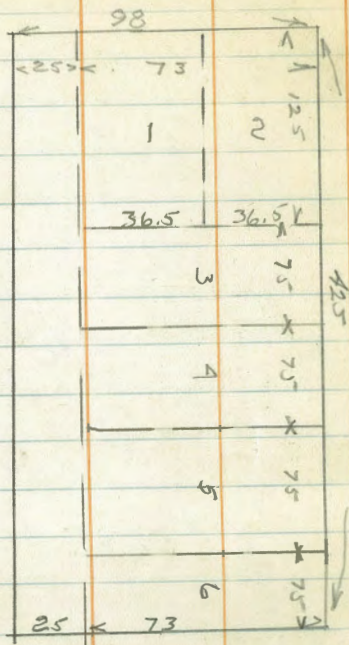 98
25 73
1 2 125
36.5 36.5
3 75
425
4 75
5 75
6 75
25 73